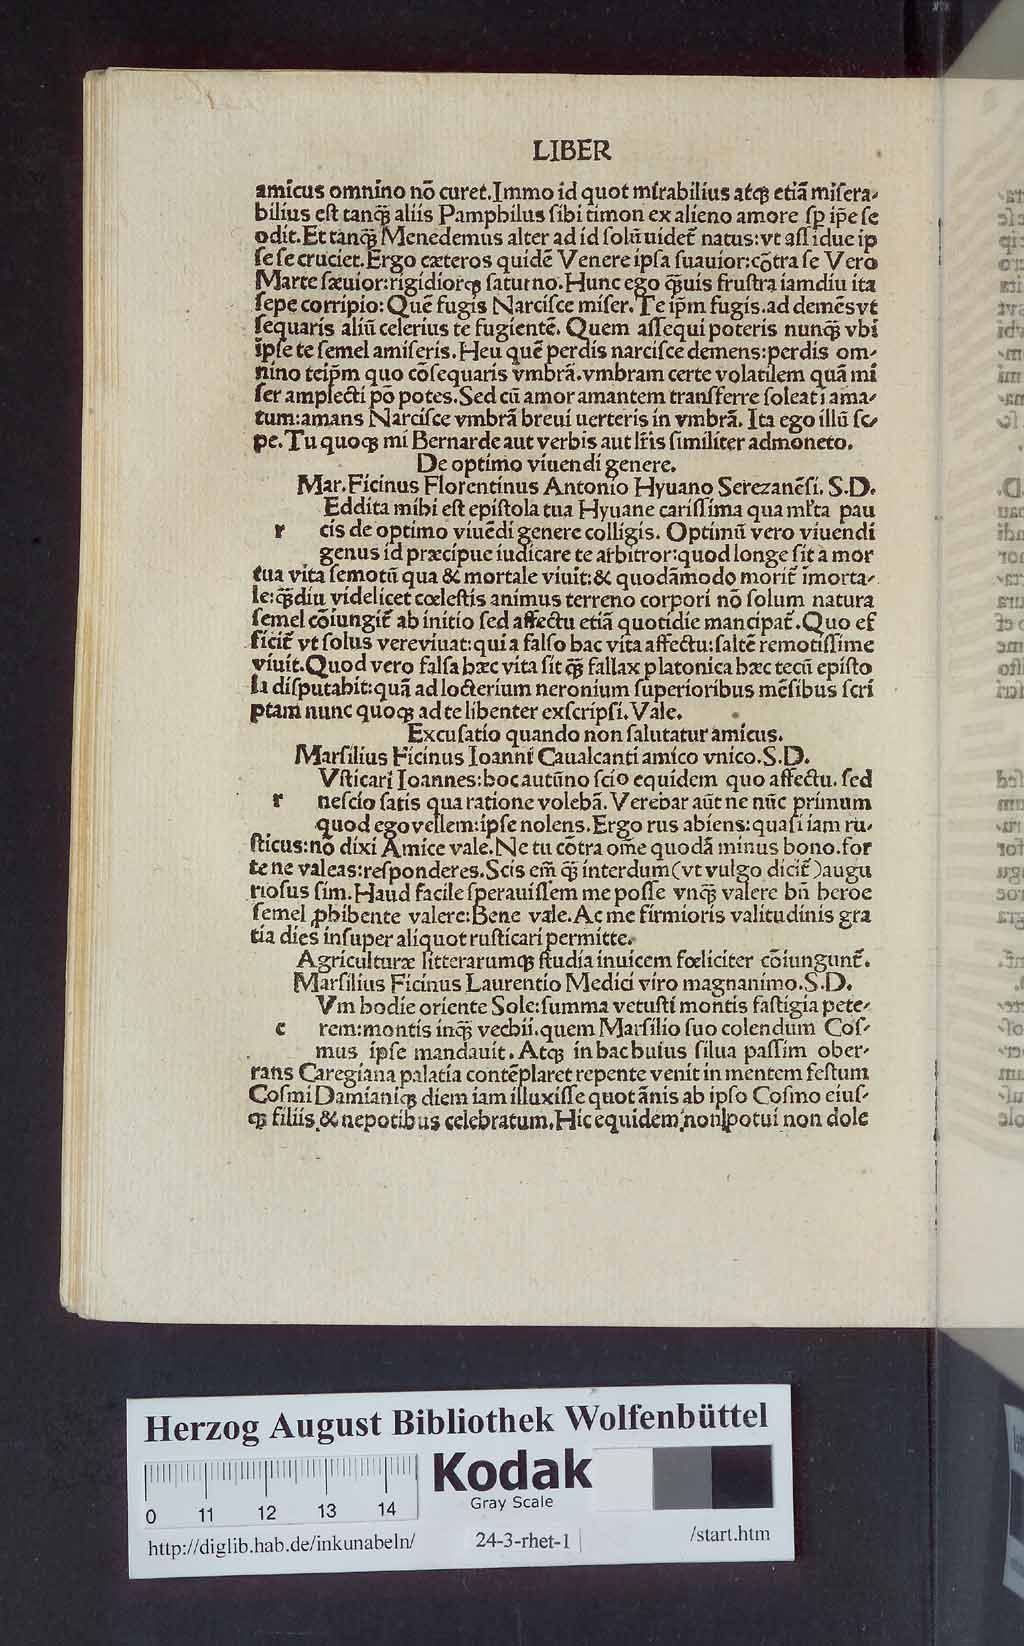 LIBER
amicus omnino nō curet. Immo id quot mirabilius atqꝫ etiā misera-
bilius est tanqꝫ̄ aliis Pamphilus sibi timon ex alieno amore sꝑ ip̄e se
odit. Et tanqꝫ̄ Menedemus alter ad id solū uidet᷑ natus: vt assidue ip
se se cruciet. Ergo cæteros quidē Venere ipsa suauior: cōtra se Vero
Marte sæuior: rigidiorqꝫ saturno. Hunc ego qꝫ̄uis frustra iamdiu ita
sepe corripio: Quē fugis Narcisce miser. Te ip̄m fugis. ad demēs vt
sequaris aliū celerius te fugientē. Quem assequi poteris nunqꝫ̄ vbi
ipse te semel amiseris. Heu quē perdis narcisce demens: perdis om-
nino teip̄m quo cōsequaris vmbrā. vmbram certe volatilem quā mi
ser amplecti nō potes. Sed cū amor amantem transferre soleat i ama-
tum: amans Narcisce vmbrā breui uerteris in vmbrā. Ita ego illū sę-
pe. Tu quoqꝫ mi Bernarde aut verbis aut lr̄is similiter admoneto.
De optimo viuendi genere.
Mar. Ficinus Florentinus Antonio Hyuano Serezanēsi. S.D.
Eddita mihi est epistola tua Hyuane carissima qua ml̄ta pau
r cis de optimo viuēdi genere colligis. Optimū vero viuendi
genus id præcipue iudicare te arbitror: quod longe sit a mor
tua vita semotū qua & mortale viuit: & quodāmodo morit᷑ imorta-
le: qꝫ̄diu videlicet cœlestis animus terreno corpori nō solum natura
semel cōiungit᷑ ab initio sed affectu etiā quotidie mancipat᷑. Quo ef
ficit᷑ vt solus vere viuat: qui a falso hac vita affectu: saltē remotissime
viuit. Quod vero falsa hæc vita sit qꝫ̄ fallax platonica hæc tecū episto
la disputabit: quā ad locterium neronium superioribus mēsibus scri
ptam nunc quoqꝫ ad te libenter exscripsi. Vale.
Excusatio quando non salutatur amicus.
Marsilius Ficinus Ioanni Caualcanti amico vnico. S.D.
Vsticari Ioannes: hoc autūno scio equidem quo affectu. sed
r nescio satis qua ratione volebā. Verebar aūt ne nūc primum
quod ego vellem: ipse nolens. Ergo rus abiens: quasi iam ru-
sticus: nō dixi Amice vale. Ne tu cōtra om̄e quodā minus bono. for
te ne valeas: responderes. Scis em̄ qꝫ̄ interdum (vt vulgo dicit᷑) augu
riosus sim. Haud facile sperauissem me posse vnqꝫ̄ valere bn̄ heroe
semel ꝓhibente valere: Bene vale. Ac me firmioris valitudinis gra
tia dies insuper aliquot rusticari permitte.
Agriculturæ litterarumqꝫ studia inuicem fœliciter cōiungunt᷑.
Marsilius Ficinus Laurentio Medici viro magnanimo. S.D.
Vm hodie oriente Sole: summa vetusti montis fastigia pete-
c rem: montis inqꝫ̄ vechii. quem Marsilio suo colendum Cos-
mus ipse mandauit. Atqꝫ in hac huius silua passim ober-
rans Caregiana palatia contēplaret repente venit in mentem festum
Cosmi Damianiqꝫ diem iam illuxisse quot ānis ab ipso Cosmo eius-
qꝫ filiis & nepotibus celebratum. Hic equidem non potui non dole
Herzog August Bibliothek Wolfenbüttel
Kodak
Gray Scale
0 11 12 13 14
http://diglib.hab.de/inkunabeln/ 24-3-rhet-1 /start.htm